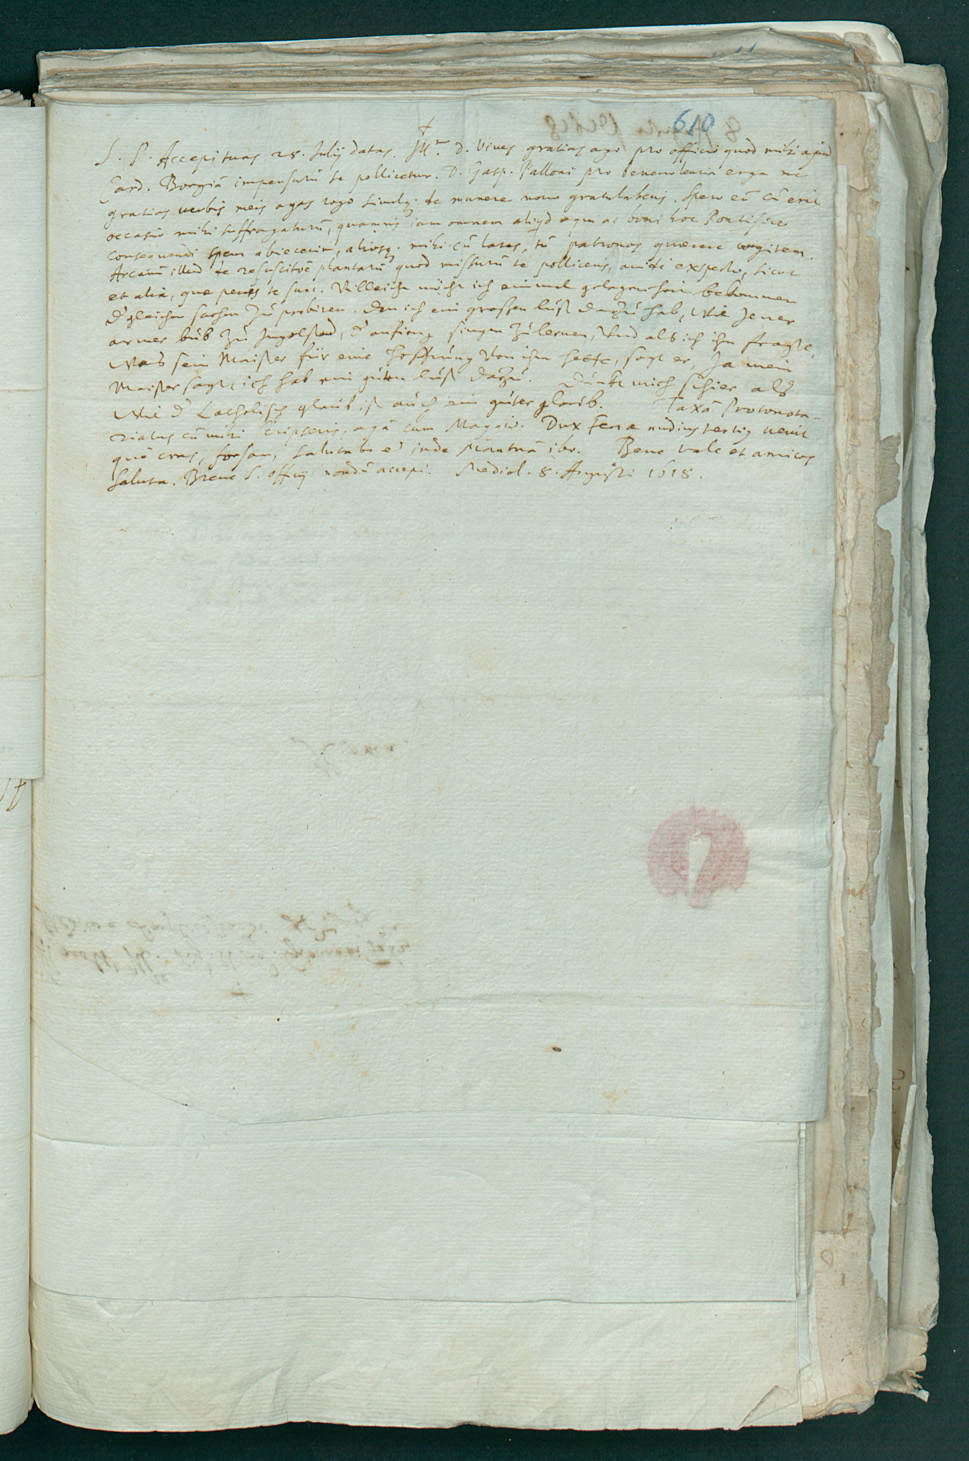 610
†
S. P. Accepi tuas 28. Julij datas. Ill.mo D. Vives gratias ago pro officio quod mihi apud
Card. Borgiā impensurū se pollicetur. D. Gasp. Palloni pro benevolentia erga me
gratias verbis meis agas rogo simulq. de munere novo gratulaberis. Spero eū cū erit
occasio mihi suffragaturū, quamvis iam omnem aliqd a boni hoc Pontifice
consequendi spem abiecerim, aliosq. mihi cū lares, tū patronos quaerere cogitem.
Arcanū illud de resuscitōe plantarū quod missurū te polliceris, avidè exspecto, sicut
et alia, que penes te sunt. Villeicht möcht ich einmal gelegenheit bekommen
d'gleichen sachen zu probiren. Den ich ein grossen lust darzu hab, Wie jener
armer bub zu Ingolstad, d' anfieng singen zu lernen, Und als ich ihn fragte,
Was sein Maister für eine hoffnung von ihm hette, sagt er Ja mein
Maister sagt, ich hab ein guten lust darzu. Dunkt mich schier als
Wie d' Catholisch glaub ist auch ein guter glaub. Taxā Protonota-
riatus cū mihi scripseris, agā cum Magno. Dux Feriae nudiustertiq venit
quē cras, forsan, salutabo et inde Mantuā ibo. Bene vale et amicos
saluta. Breve S. Officij nondū accepi. Mediol. 8. Augusti 1618.